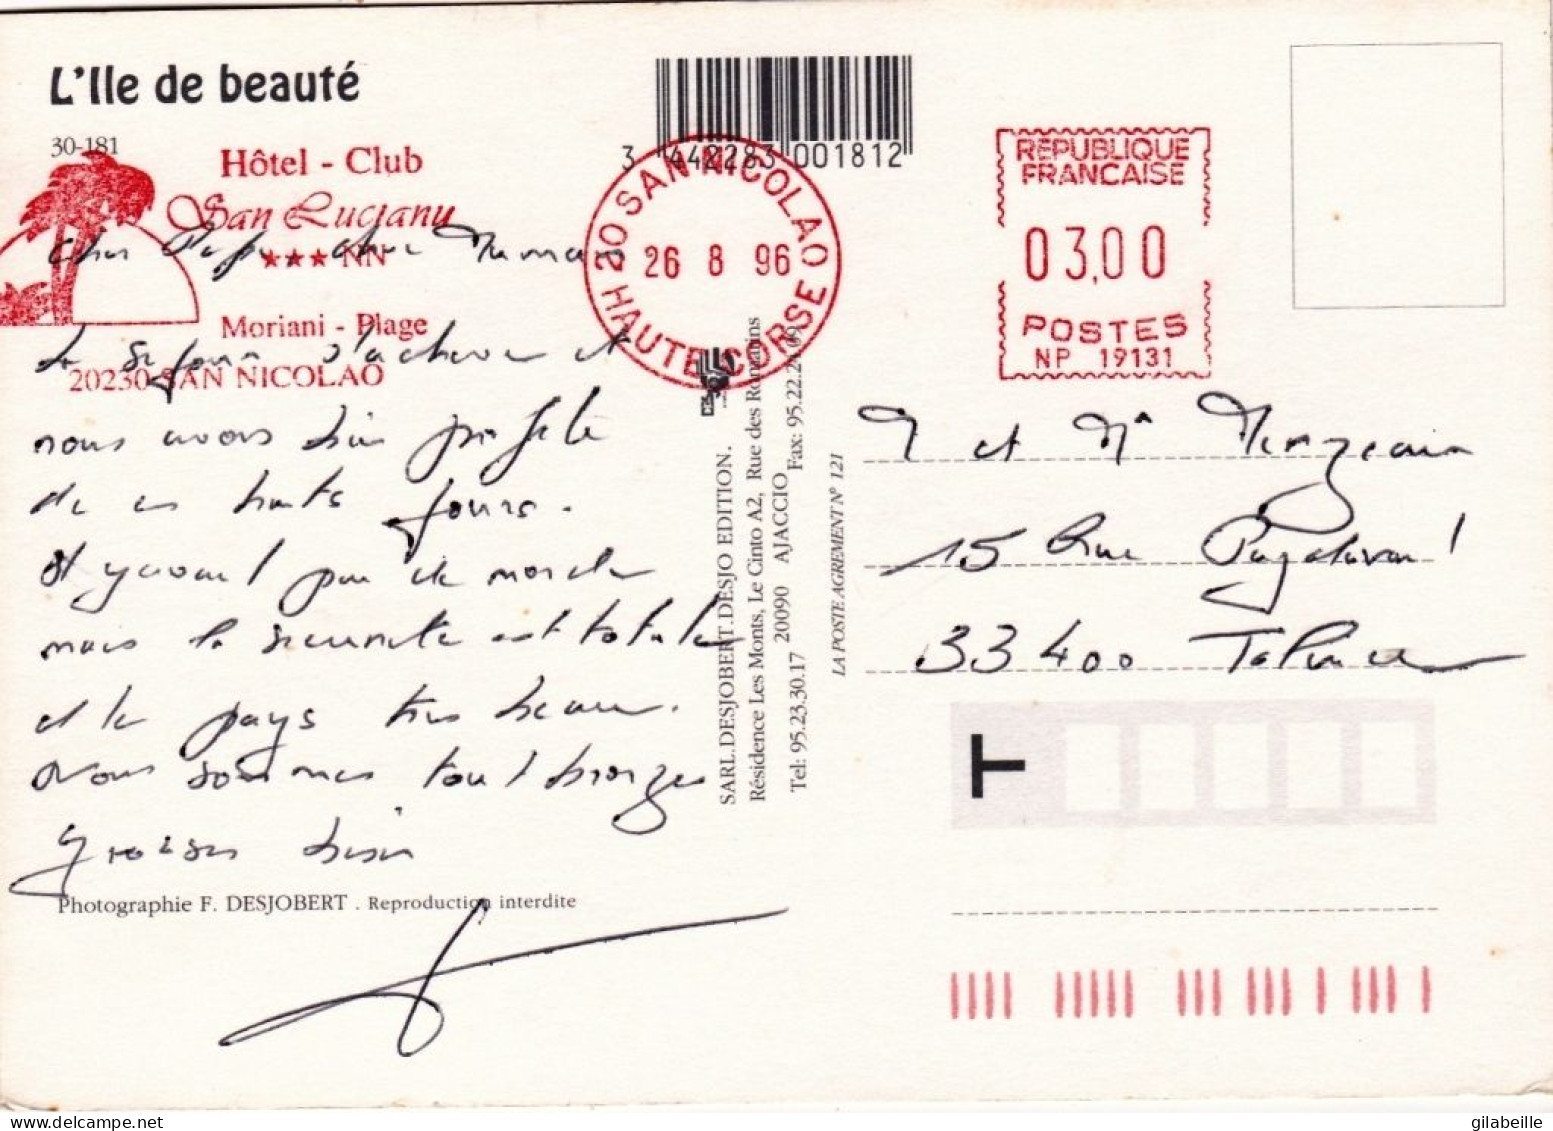 L'Ile de beauté
30-181
Hôtel - Club
San Lucianu
★★★ NN
Moriani - Plage
20230 SAN NICOLAO
3 442283 001812
20 SAN NICOLAO
26 8 96
HAUTE CORSE
REPUBLIQUE
FRANCAISE
03,00
POSTES
NP 19131
Cher Papa, chère Maman
Le séjour s'achève et
nous avons bien profité
de ces huits jours.
du monde
mais la sécurité est totale
et le pays très beau.
Nous sommes tout bronzés
grosses bises
Photographie F. DESJOBERT . Reproduction interdite
SARL.DESJOBERT.DESJO EDITION.
Résidence Les Monts, Le Cinto A2, Rue des Romarins
Tel: 95.23.30.17 20090 AJACCIO Fax: 95.22.
LA POSTE AGREMENT N° 121
M et Me
15 Rue
33400 Talence
T
gilabeille